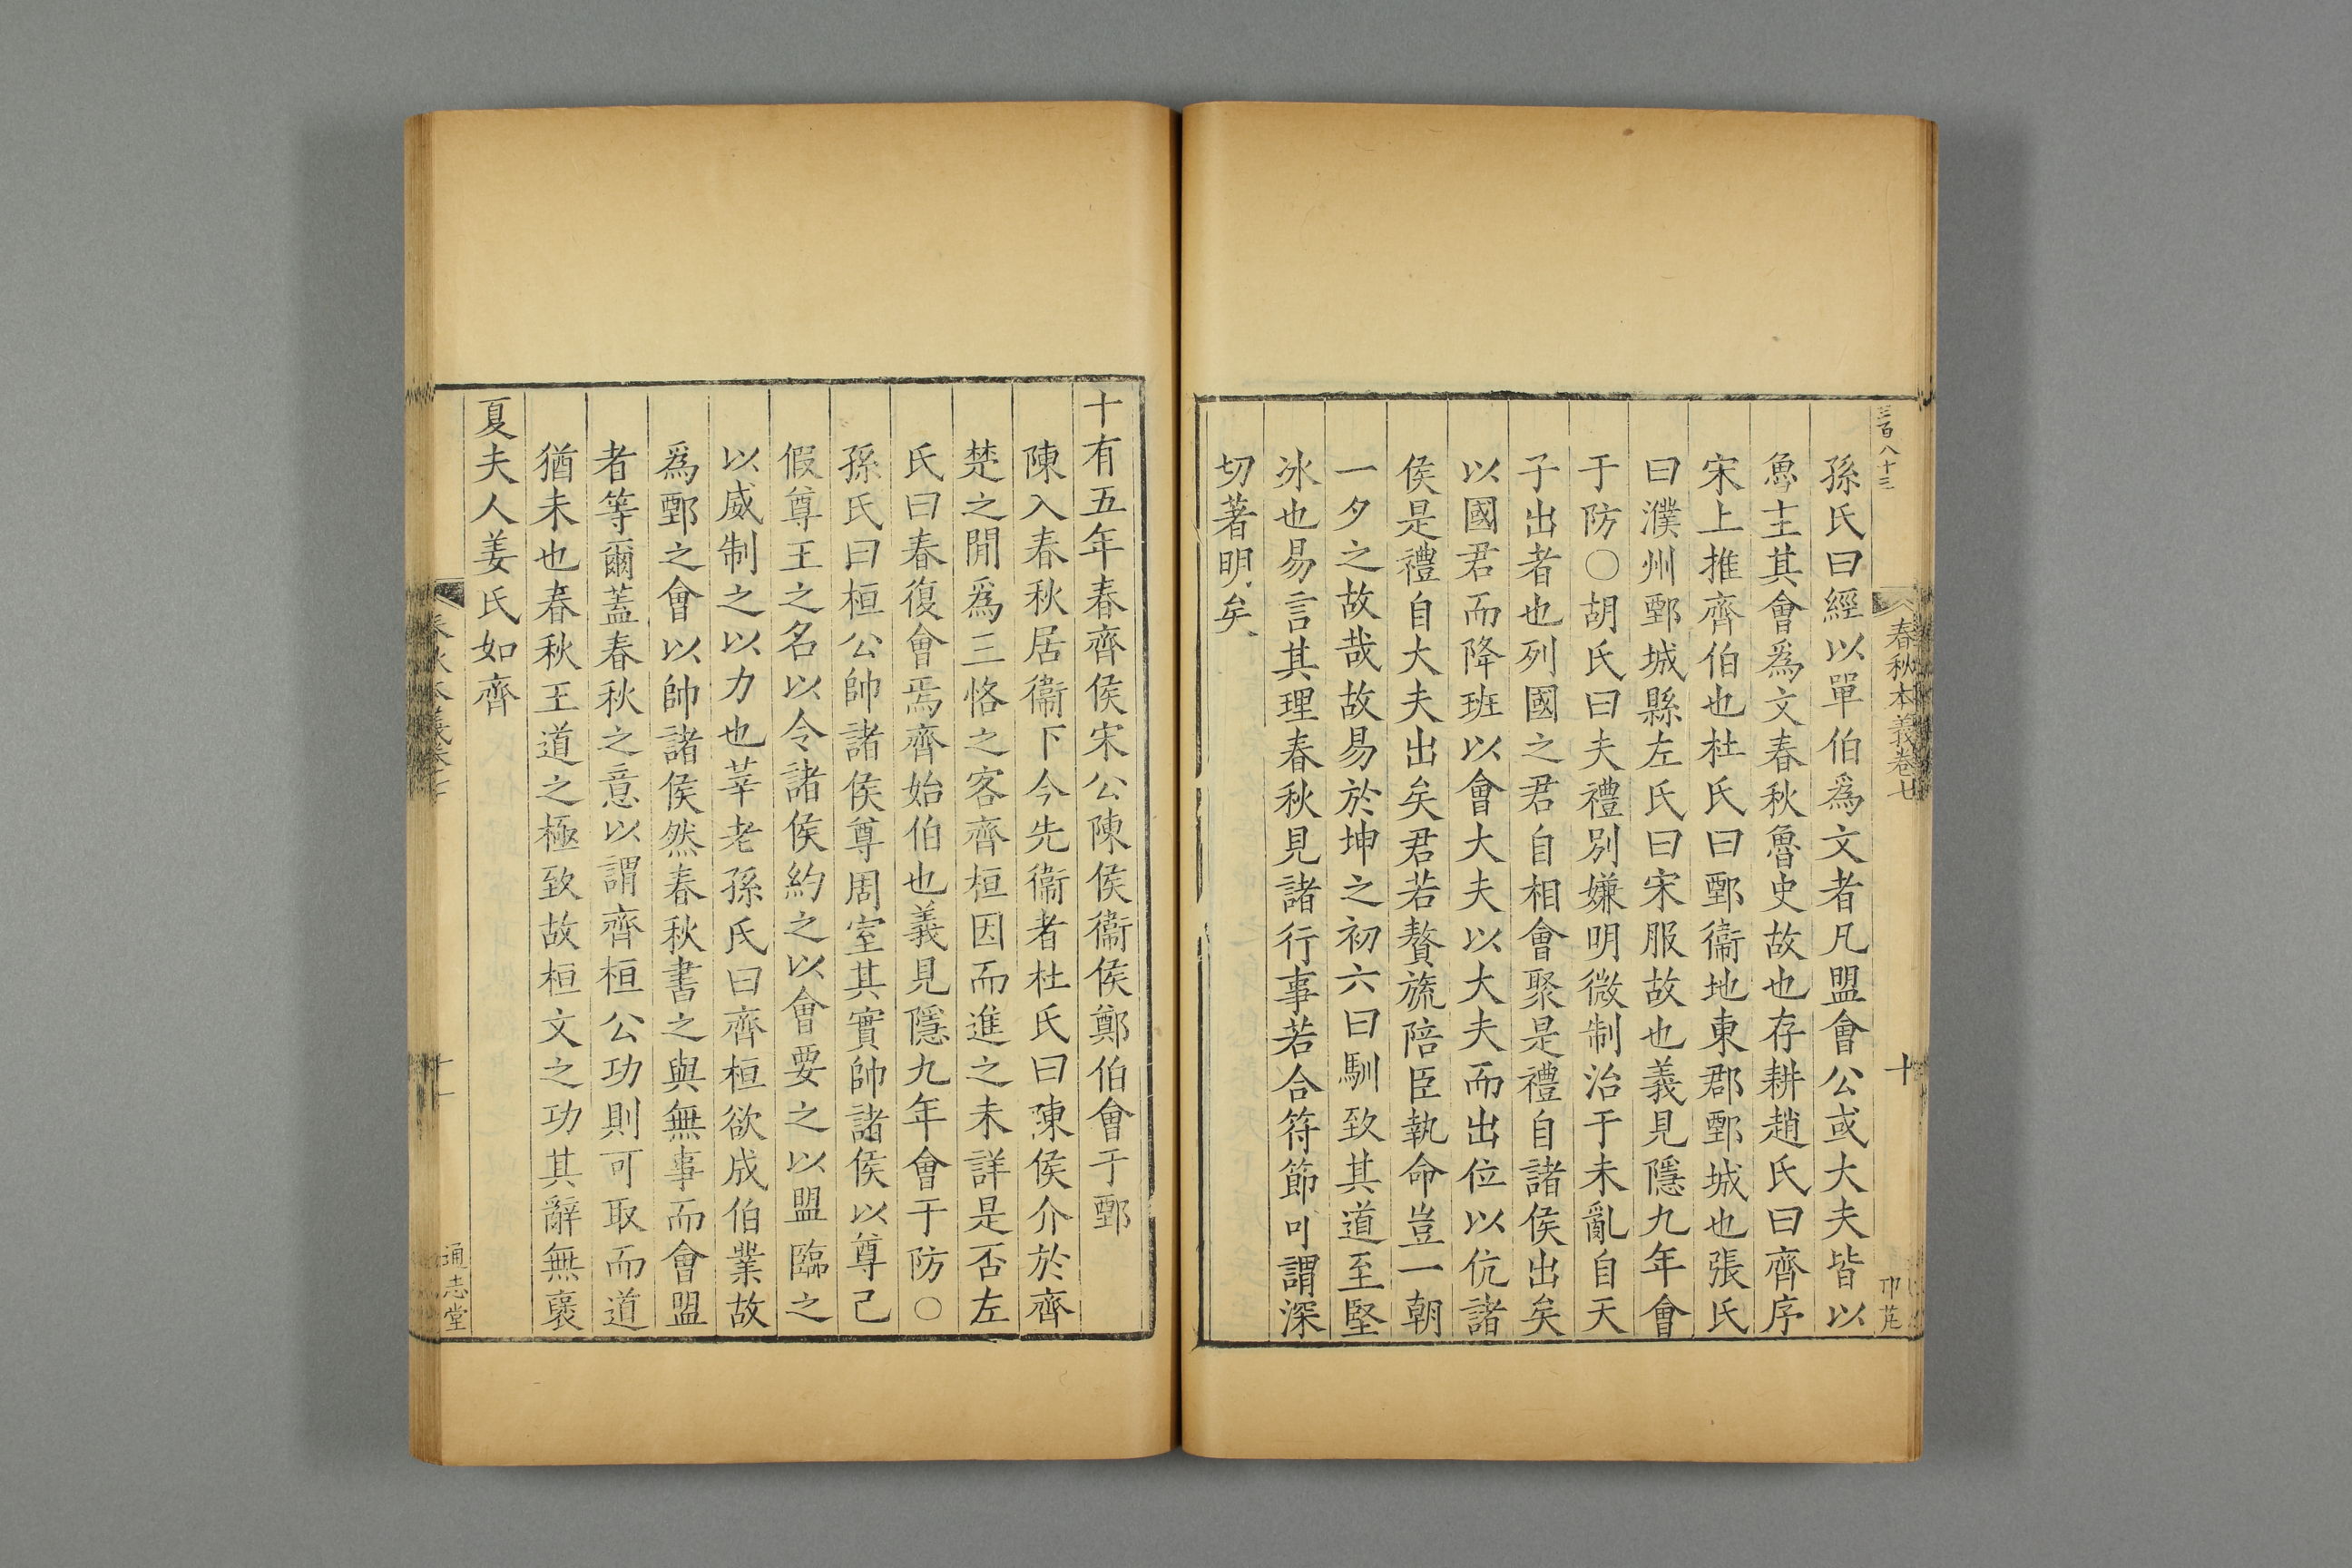 三百八十三
春秋本義卷七
十
孫氏曰經以單伯爲文者凡盟會公或大夫皆以
魯主其會爲文春秋魯史故也存耕趙氏曰齊序
宋上推齊伯也杜氏曰鄄衞地東郡鄄城也張氏
曰濮州鄄城縣左氏曰宋服故也義見隱九年會
于防○胡氏曰夫禮別嫌明微制治于未亂自天
子出者也列國之君自相會聚是禮自諸侯出矣
以國君而降班以會大夫以大夫而出位以伉諸
侯是禮自大夫出矣君若贅旒陪臣執命豈一朝
一夕之故哉故易於坤之初六曰馴致其道至堅
冰也易言其理春秋見諸行事若合符節可謂深
切著明矣
十有五年春齊侯宋公陳侯衞侯鄭伯會于鄄
陳入春秋居衞下今先衞者杜氏曰陳侯介於齊
楚之閒爲三恪之客齊桓因而進之未詳是否左
氏曰春復會焉齊始伯也義見隱九年會于防○
孫氏曰桓公帥諸侯尊周室其實帥諸侯以尊己
假尊王之名以令諸侯約之以會要之以盟臨之
以威制之以力也莘老孫氏曰齊桓欲成伯業故
爲鄄之會以帥諸侯然春秋書之與無事而會盟
者等爾蓋春秋之意以謂齊桓公功則可取而道
猶未也春秋王道之極致故桓文之功其辭無襃
夏夫人姜氏如齊
春秋本義卷七
十一
通志堂